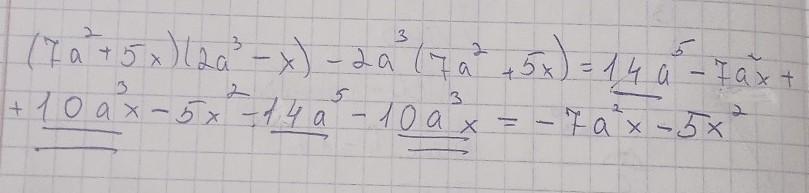 (7a²+5x)(2a³-x)-2a³(7a²+5x)=14a⁵-7a²x+
+10a³x-5x²-14a⁵-10a³x=-7a²x-5x²